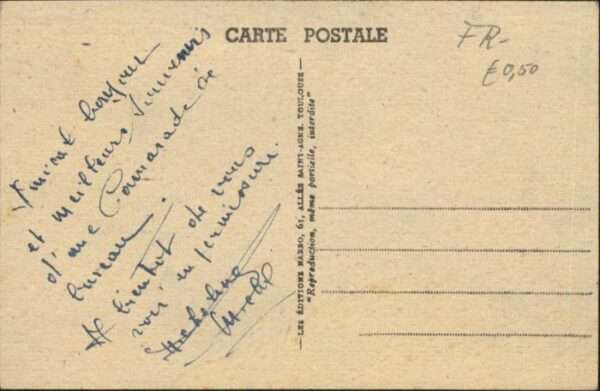 CARTE POSTALE
FR-
€0,50
Amical bonjour
et meilleurs souvenirs
d'une Camarade de
bureau.
A bientôt de vous
voir en permission.
— LES ÉDITIONS NARBO, 61, ALLÉE SAINT-AGNE, TOULOUSE —
"Reproduction, même partielle, interdite"